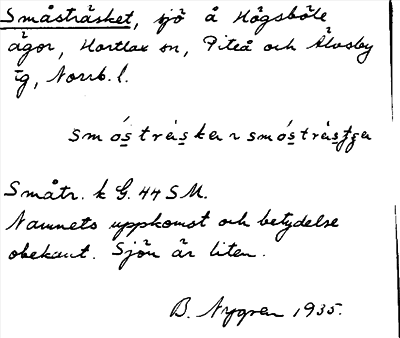 Småsträsket, sjö å Högsböle
ägor, Hortlax sn, Piteå och Älvsby
tg, Norrb. l.
smósträsker ~ smósträsʃʃe
Småtr. k G. 44 SM.
Namnets uppkomst och betydelse
obekant. Sjön är liten.
B. Nygren 1935.